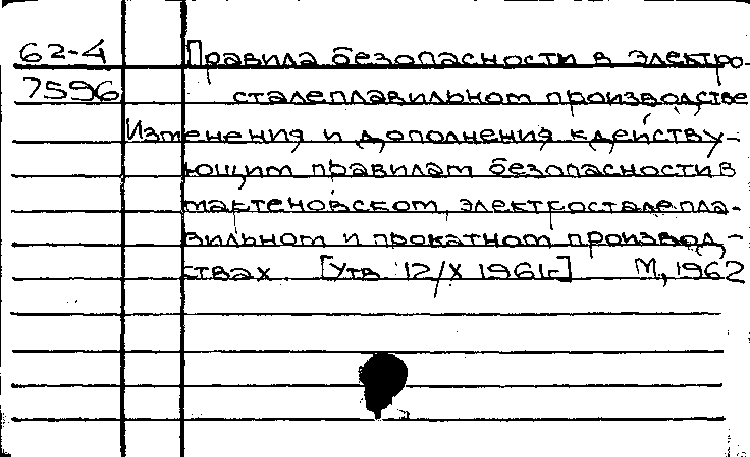 62-4 Правила безопасности в электро-
7596 сталеплавильном производстве
Изменения и дополнения к действу-
ющим правилам безопасности в
мартеновском, электросталепла-
вильном и прокатном производ-
ствах [Утв 12/X 1961г] М, 1962